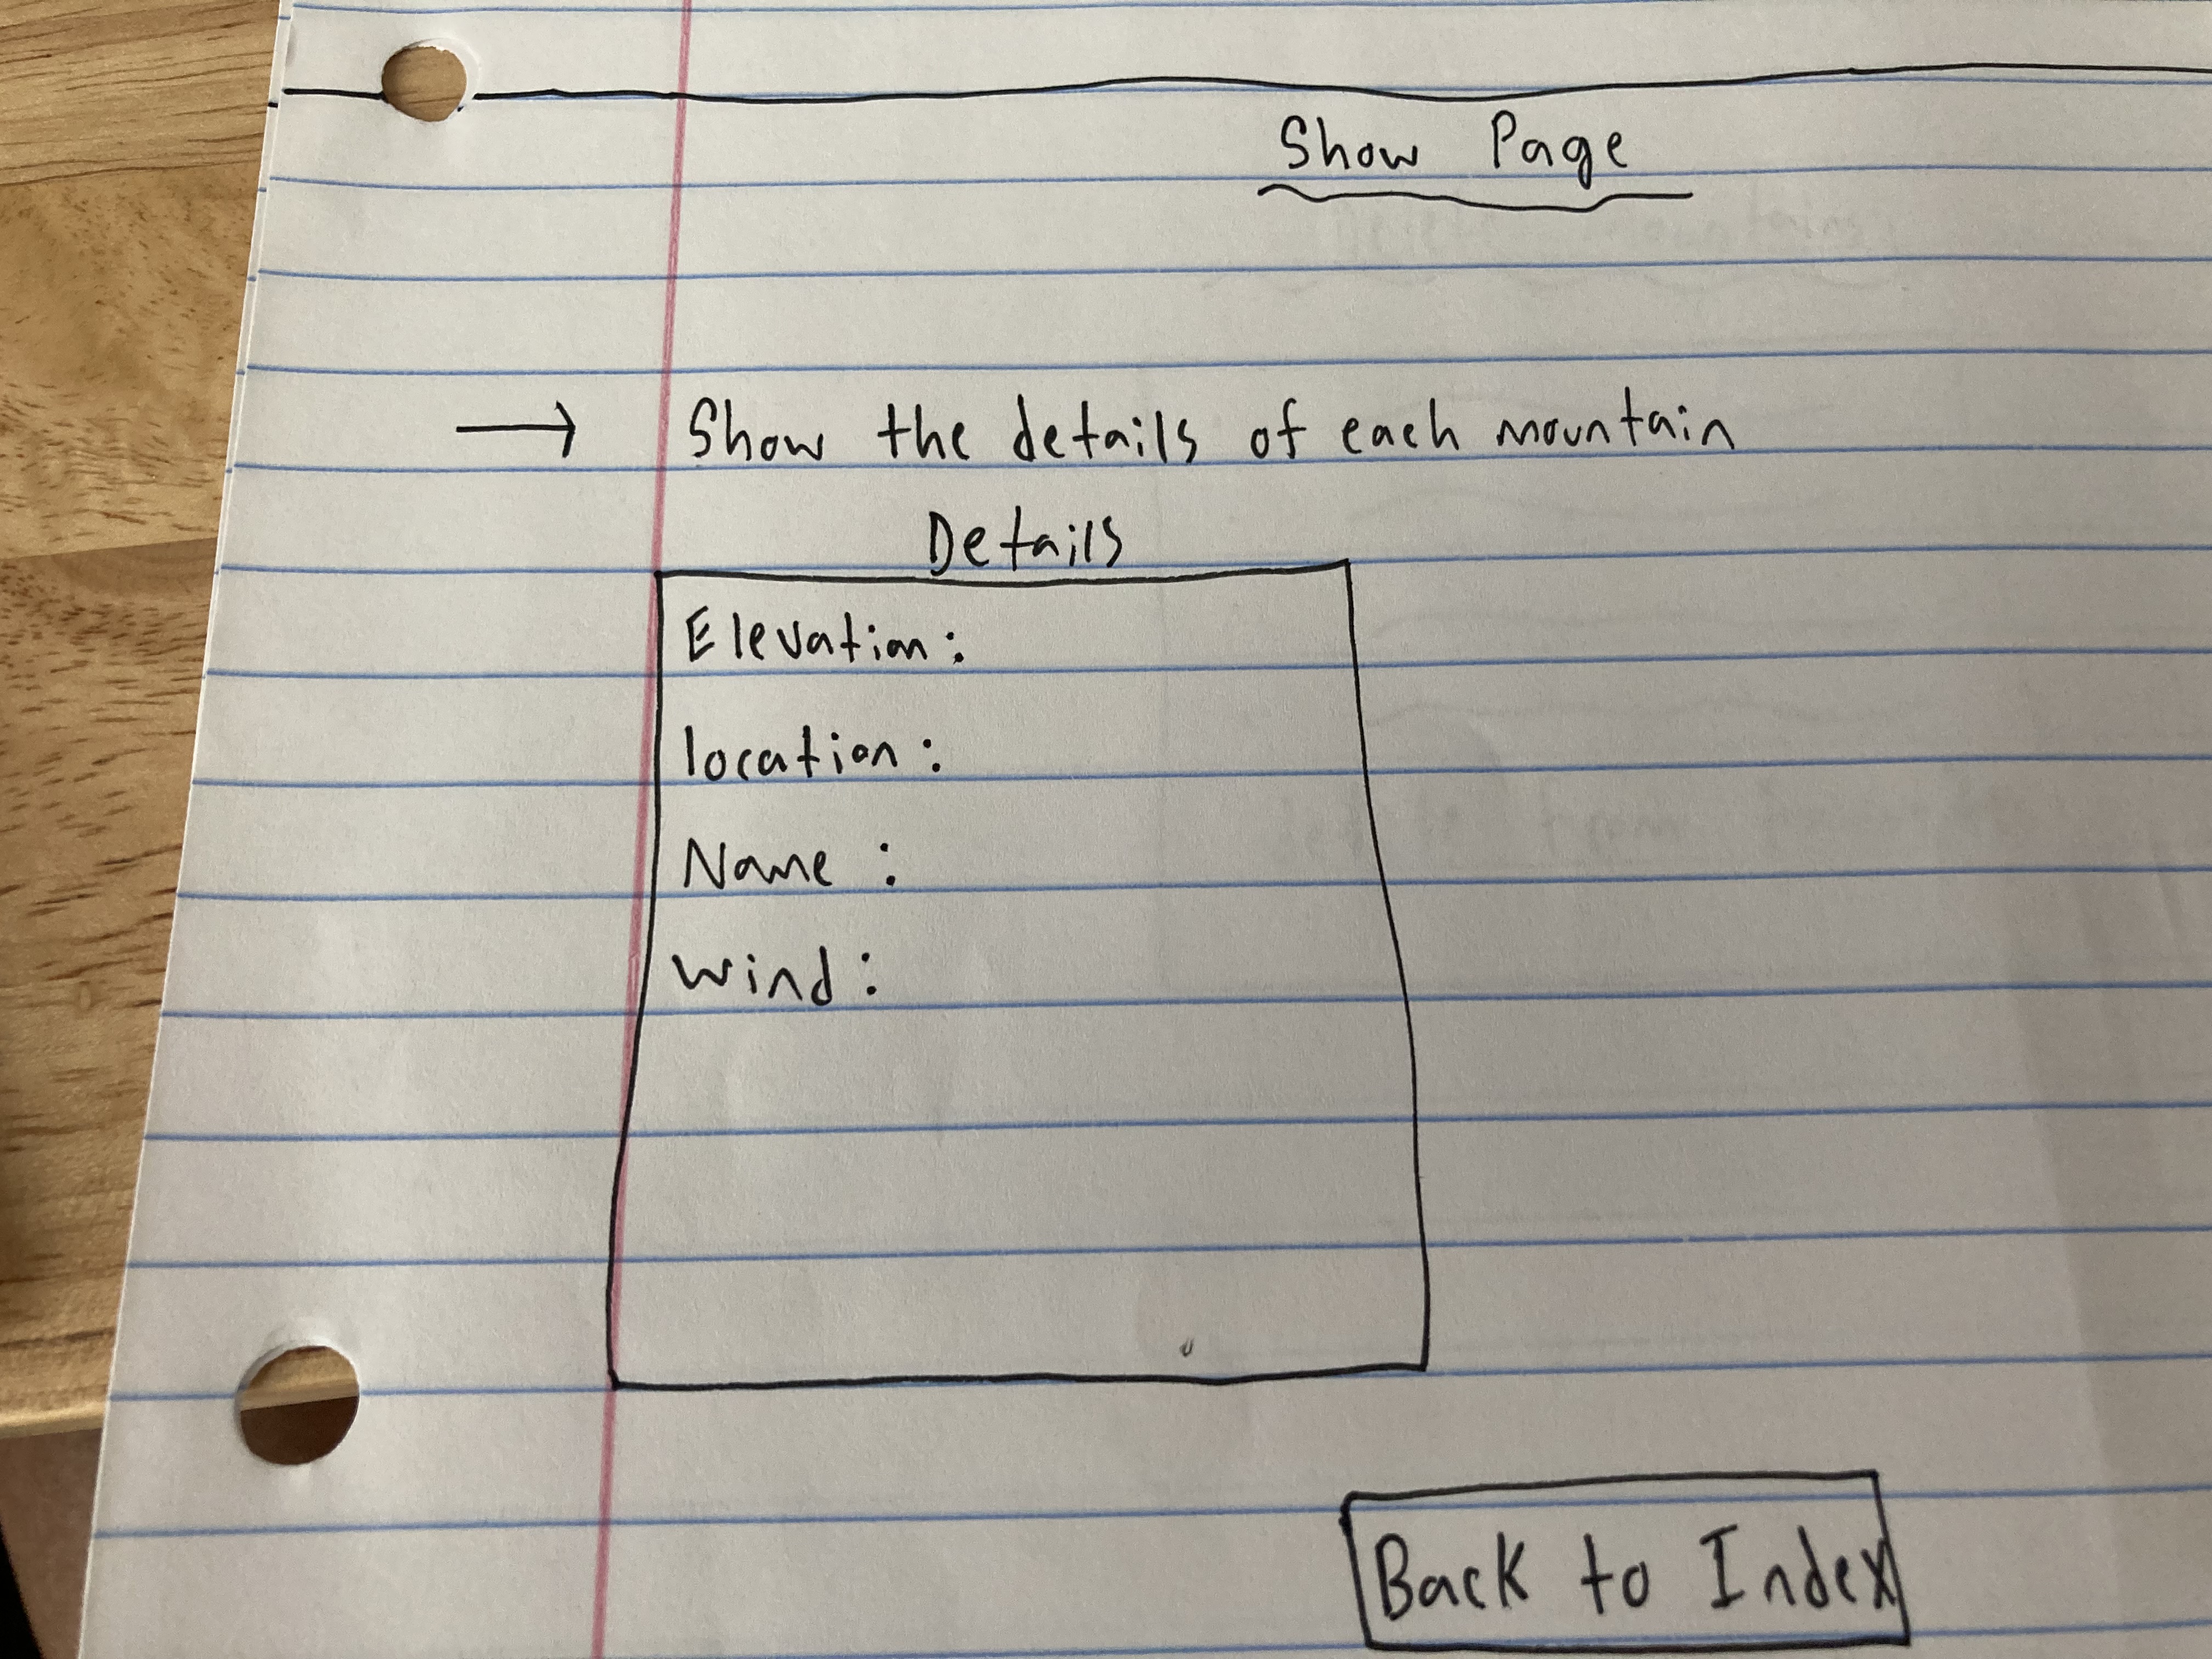 Show Page
→ Show the details of each mountain
Details
Elevation:
location:
Name :
wind:
Back to Index